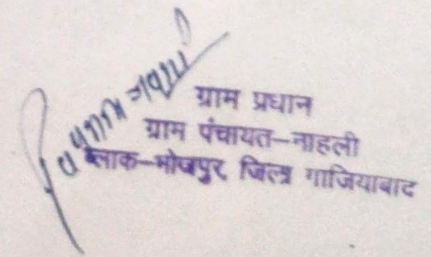 ग्राम प्रधान
ग्राम पंचायत–नाहली
ब्लाक–भोजपुर, जिला गाजियाबाद